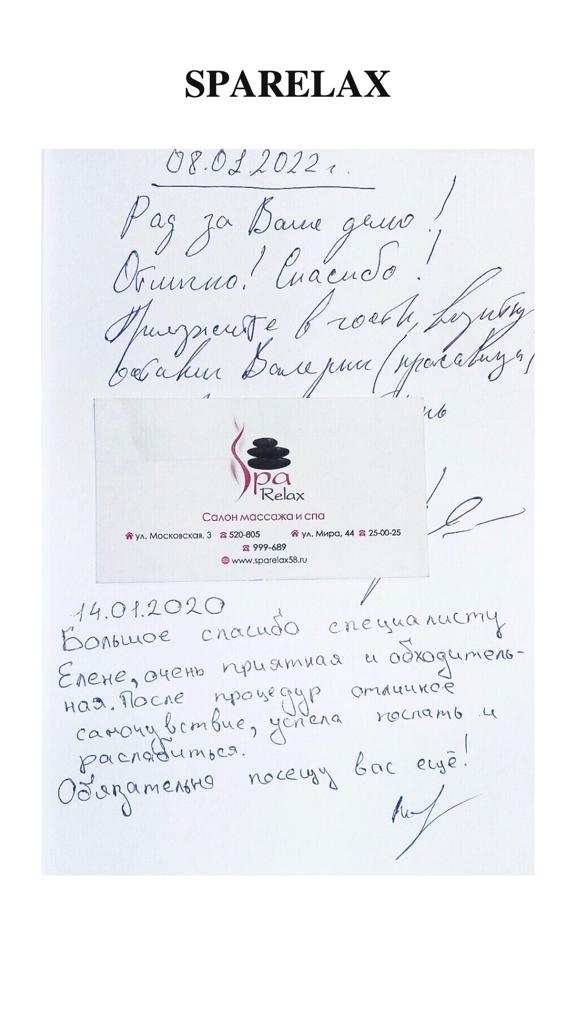 SPARELAX
08.01.2022 г.
Рад за Ваше дело!
Отлично! Спасибо!
Приезжайте в гости, визитку
оставил Валерии (красавица,
Spa
Relax
Салон массажа и спа
ул. Московская, 3 520-805 ул. Мира, 44 25-00-25
999-689
www.sparelax58.ru
14.01.2020
Большое спасибо специалисту
Елене, очень приятная и обходитель-
ная. После процедур отличное
самочувствие, успела поспать и
расслабиться.
Обязательно посещу вас ещё!